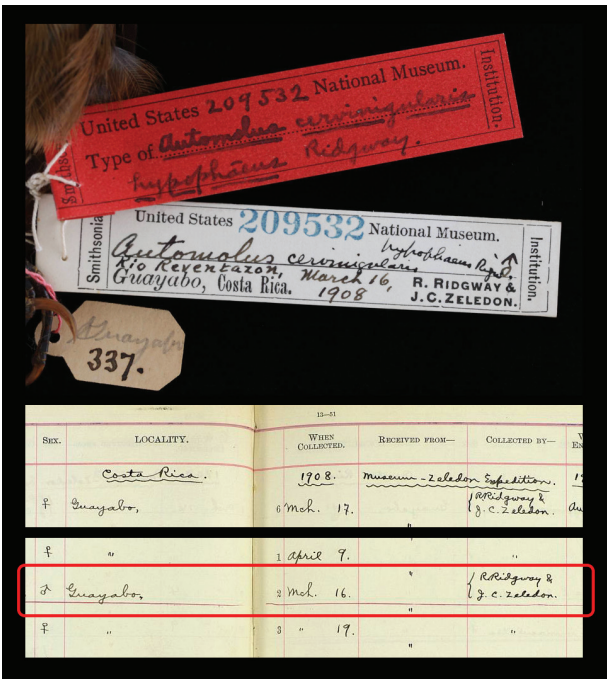 United States 209532 National Museum.
Type of Automolus cervinigularis
hypophaeus Ridgway.
Smiths
Institution.
United States 209532 National Museum.
Automolus cervinigularis hypophaeus Ridgw. ♂
Rio Reventazon, March 16,
Guayabo, Costa Rica. 1908
R. RIDGWAY &
J. C. ZELEDON.
Smithsonia
Institution.
Guayabo
337.
13—51
SEX. LOCALITY. WHEN COLLECTED. RECEIVED FROM— COLLECTED BY—
Costa Rica. 1908. Museum-Zeledon Expedition. 19
♀ Guayabo, 6 Mch. 17. " { R Ridgway & J. C. Zeledon. Au
♀ " 1 April 9. " "
♂ Guayabo, 2 Mch. 16. " { R Ridgway & J. C. Zeledon.
♀ " 3 " 19. " "